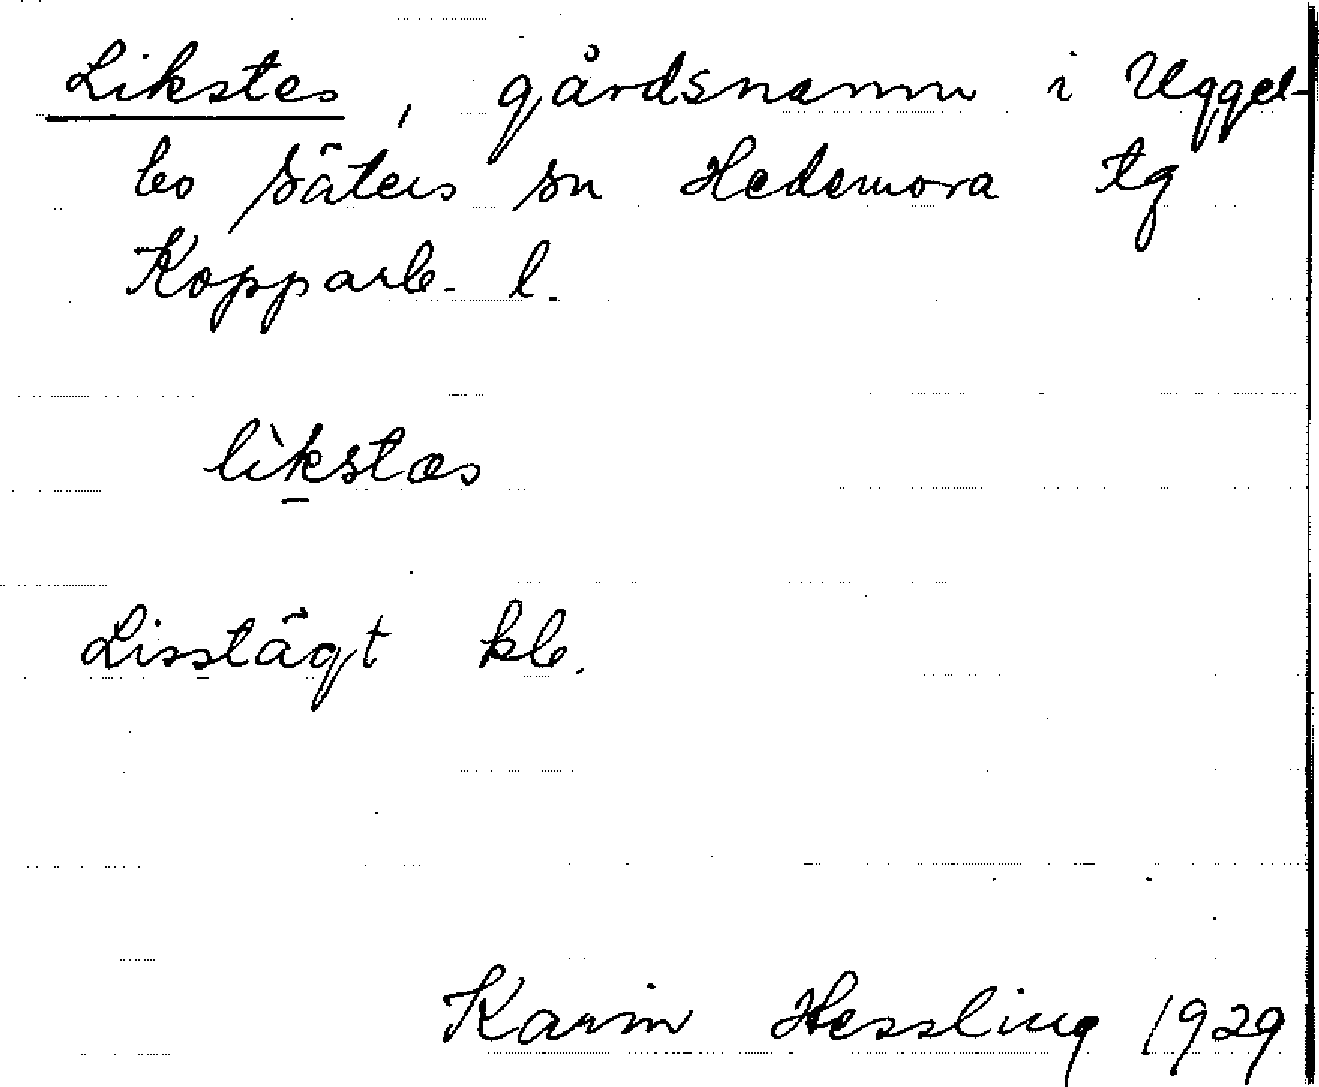 Likstes, gårdsnamn i Uggel-
bo Säters sn Hedemora tg
Kopparb. l.
lìkstæs
Lisstägt kb.
Karin Hessling 1929